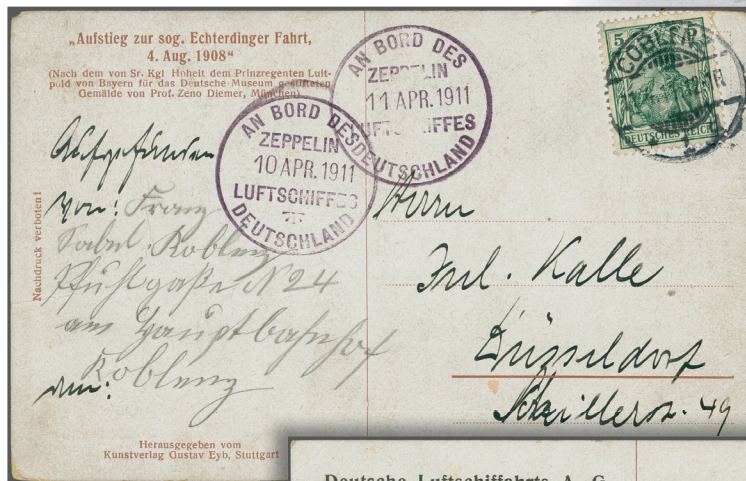 „Aufstieg zur sog. Echterdinger Fahrt,
4. Aug. 1908“
(Nach dem von Sr. Kgl Hoheit dem Prinzregenten Luit-
puld von Bayern für das Deutsche Museum gestifteten
Gemälde von Prof. Zeno Diemer, München)
AN BORD DES
ZEPPELIN
11 APR. 1911
LUFTSCHIFFES
DEUTSCHLAND
AN BORD DES
ZEPPELIN
10 APR. 1911
LUFTSCHIFFES
DEUTSCHLAND
5
COBLENZ
DEUTSCHES REICH
Nachdruck verboten!
Aufgefunden
von: Franz
Sabel. Koblenz
N 24
am Hauptbahnhof
Koblenz
Herrn
Jul. Kalle
Düsseldorf
Schillerstr. 49
Herausgegeben vom
Kunstverlag Gustav Eyb, Stuttgart
Deutsche Luftschiffahrts A. G.